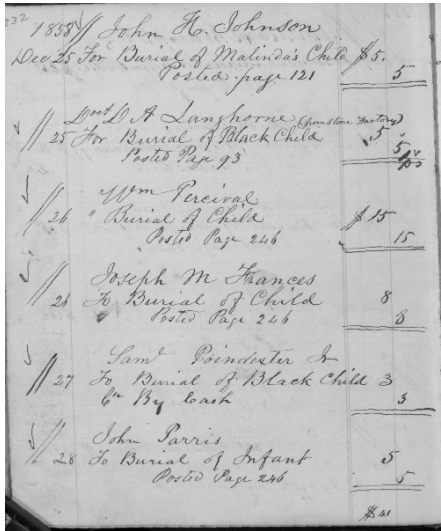 232
1858 John H. Johnson
Dec 25 For Burial of Malinda's Child $5.
Posted page 121 5
Doct D A Langhorne (from Stone Factory)
25 For Burial of Black Child 5
Posted Page 93 5
Wm Percival
26 " Burial of Child $15
Posted Page 246 15
Joseph M Frances
26 To Burial of Child 8
Posted Page 246 8
Saml Poindexter Jr
27 To Burial of Black Child 3
Cr By Cash 3
John Parris
28 To Burial of Infant 5
Posted Page 246 5
$41